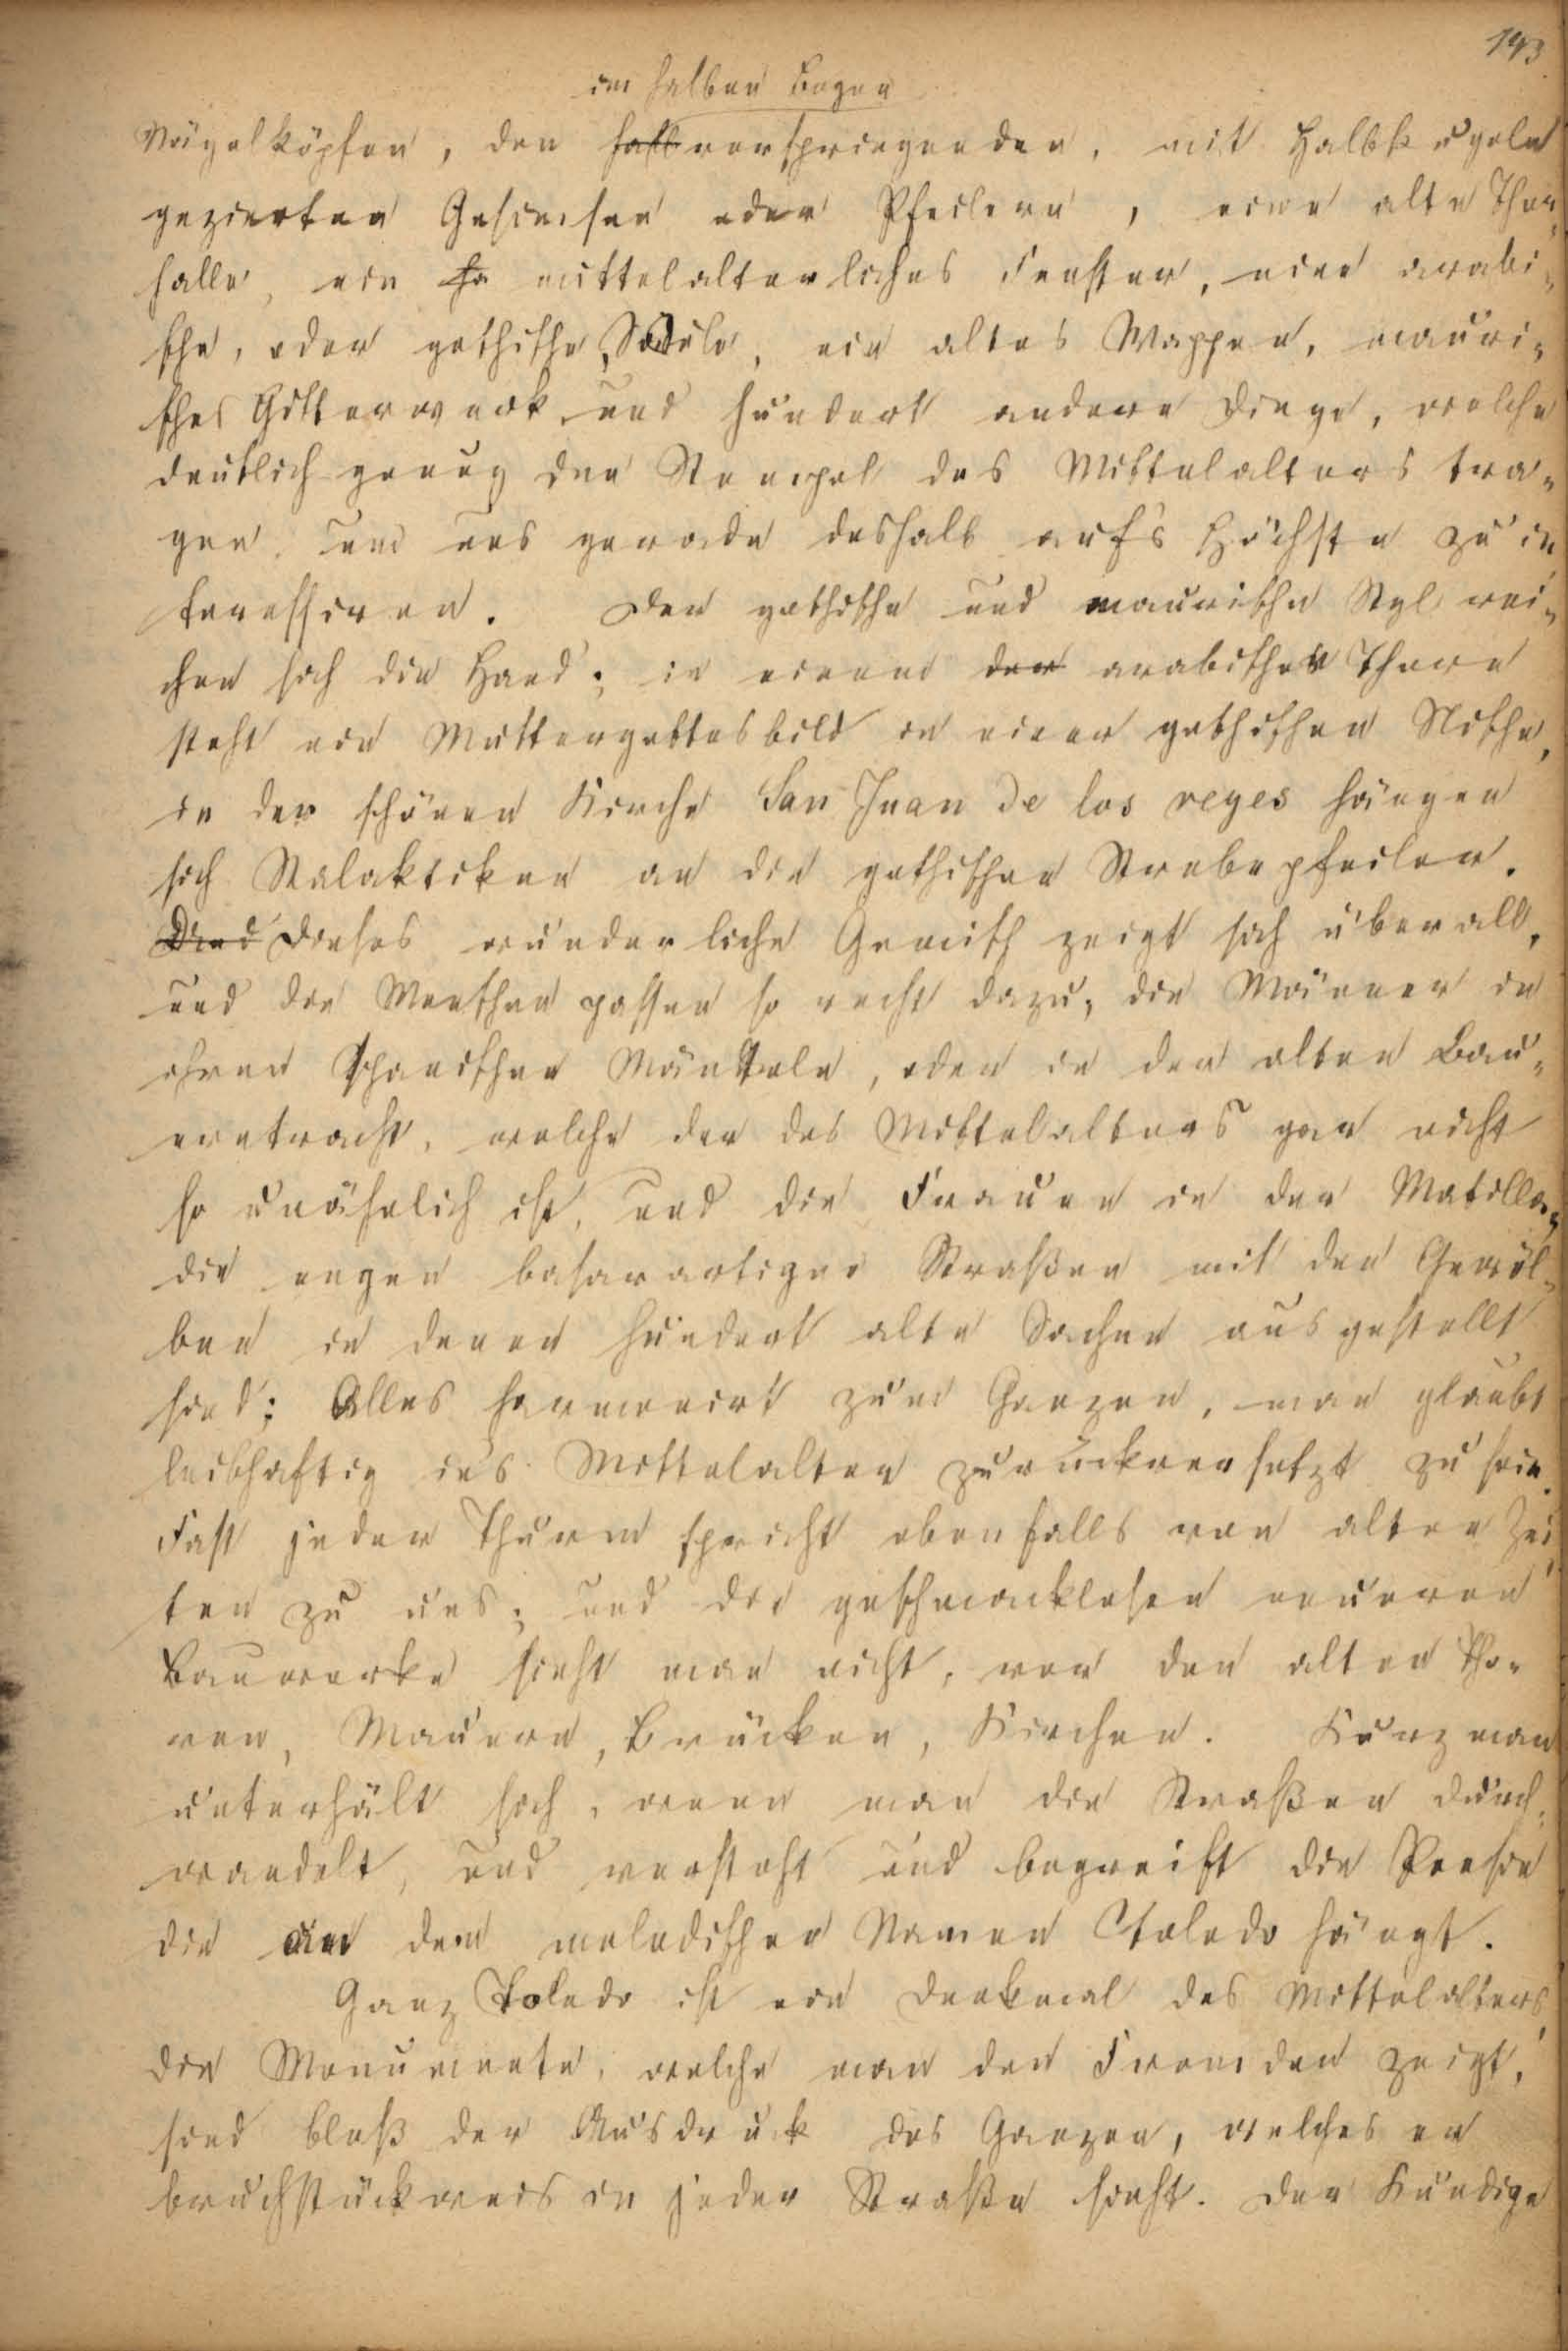 143
im halben Bogen
Nägelköpfen, den halbvorspringenden, mit Halbkugeln
gezierten Gesimsen oder Pfeilern, eine alte Thor,
halle, ein ha mittelalterliches Fenster, eine arabi,
sche, oder gothische Säule, ein altes Wappen, mauri,
sches Gitterwerk und hundert andere Dinge, welche
deutlich genug den Stempel des Mittelalters tra,
gen, um uns gerade deshalb auf's Höchste zu in
teressiren. Der gothische und maurische Styl rei,
chen sich die Hand; in einem der arabischen Thore
steht ein Muttergottesbild in einer gothischen Nische,
in der schönen Kirche San Juan de los reyes hängen
sich Stalaktiken an die gothischen Strebepfeiler.
Dies Dieses wunderliche Gemisch zeigt sich überall,
und die Menschen passen so recht dazu; die Männer in
ihren spanischen Mänteln, oder in der alten Bau,
erntracht, welche der des Mittelalters gar nicht
so unähnlich ist, und die Frauen in der Matilla,
die engen basarartigen Straßen mit den Gewöl,
ben in denen hundert alte Sachen ausgestellt
sind; Alles harmonirt zum Ganzen, man glaubt
leibhaftig ins Mittelalter zurückversetzt zu sein.
Fast jeder Thurm spricht ebenfalls von alten Zei
ten zu uns; und die geschmacklosen neueren
Bauwerke sieht man nicht, vor den alten Tho,
ren, Mauern, Brücken, Kirchen. Kurz man
unterhält sich, wenn man die Straßen durch,
wandelt, und versteht und begreift die Poesie
die an dem melodischen Namen Toledo hängt.
Ganz Toledo ist ein Denkmal des Mittelalters,
die Monumente, welche man den Fremden zeigt,
sind bloß der Ausdruck des Ganzen, welches er
bruchstückweis in jeder Straße sieht. Der Kundige